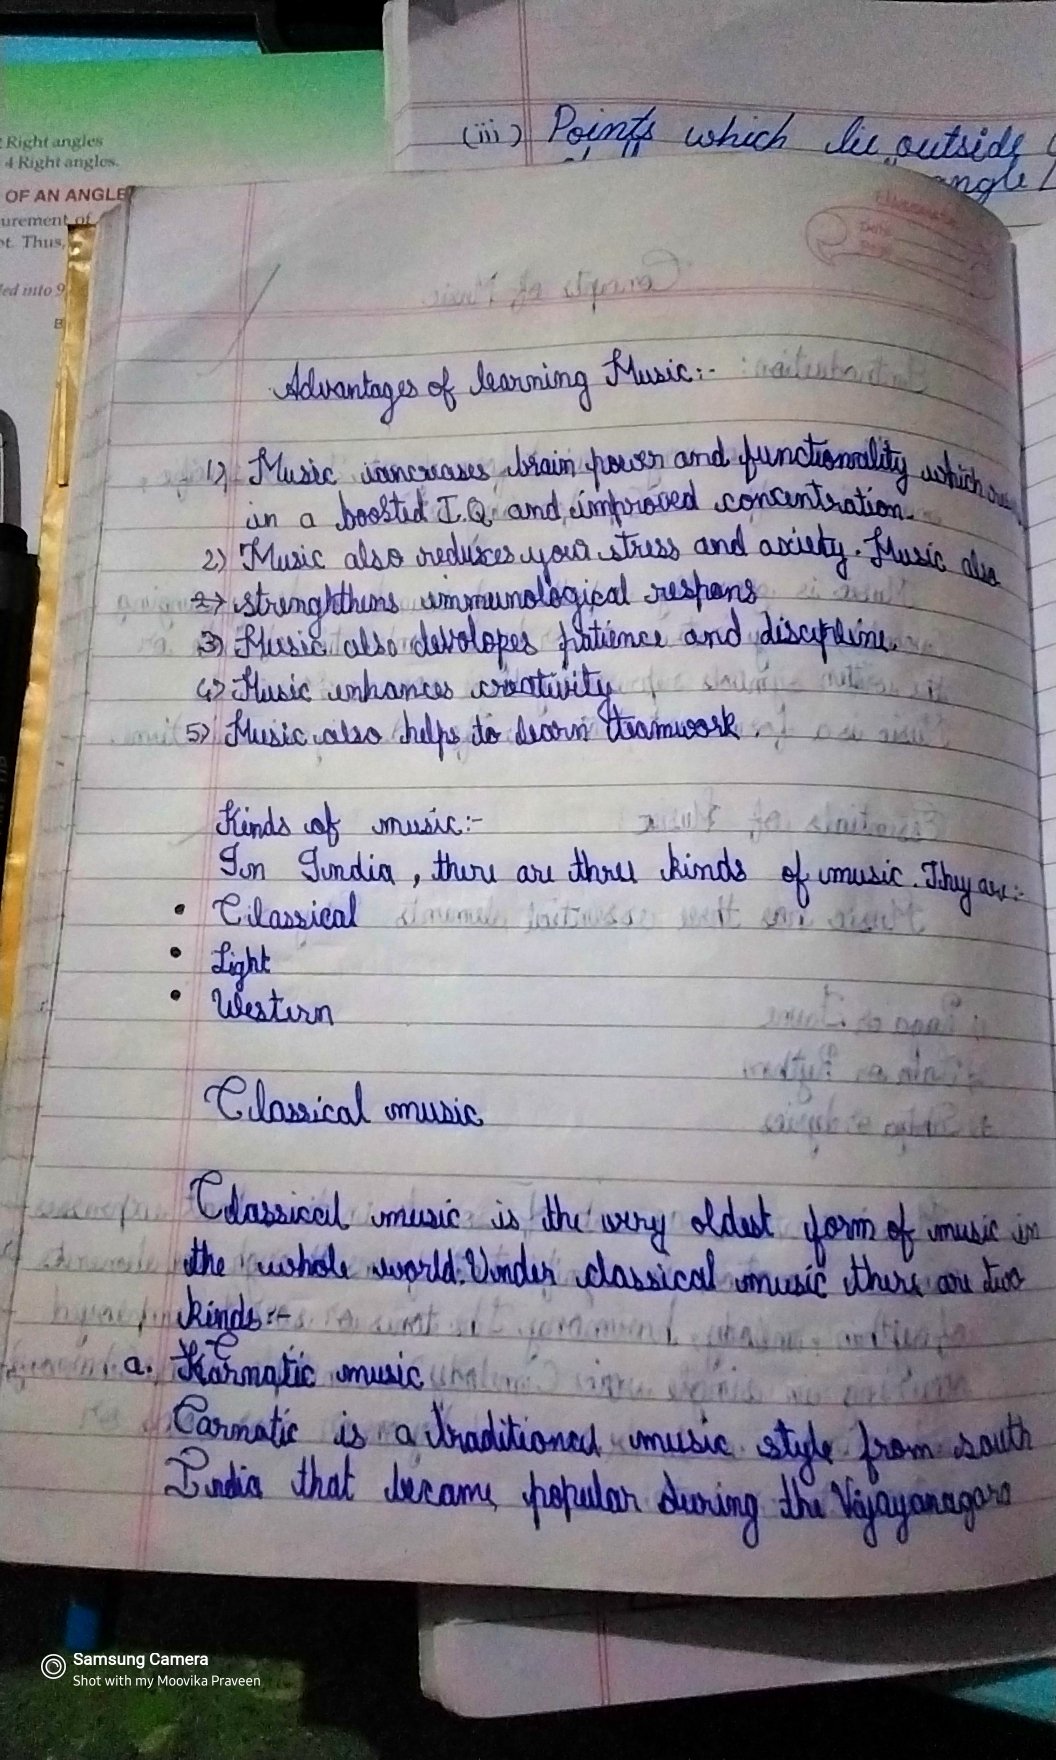 Right angles
4 Right angles.
OF AN ANGLE
urement of
ot. Thus,
ded into 9
B
(iii) Points which lie outside
angle
Date
Advantages of learning Music:-
1) Music iancreases brain power and functionality which
in a boosted I.Q and improved concentration.
2) Music also reduces your stress and axiety. Music also
strenghthens immunological respons
3) Music also devolopes patience and discipline.
4) Music enhances creativity
5) Music also helps to learn teamwork.
Kinds of music:-
In India, there are three kinds of music. They are:-
• Classical
• Light
• Western
Classical music
Classical music is the very oldest form of music in
the whole world. Under classical music there are two
kinds:-
a. Karnatic music
Carnatic is a traditional music style from south
India that became popular during the Vijayanagara
Samsung Camera
Shot with my Moovika Praveen